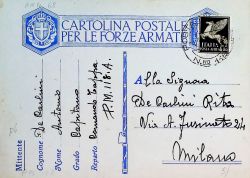 CARTOLINA POSTALE
PER LE FORZE ARMATE
Mittente
Cognome De Carlini
Nome Antonio
Grado Capitano
Reparto Comando Tappa
P.M. 118. A.
Alla Signora
De Carlini Rita
Via A. 24
Milano